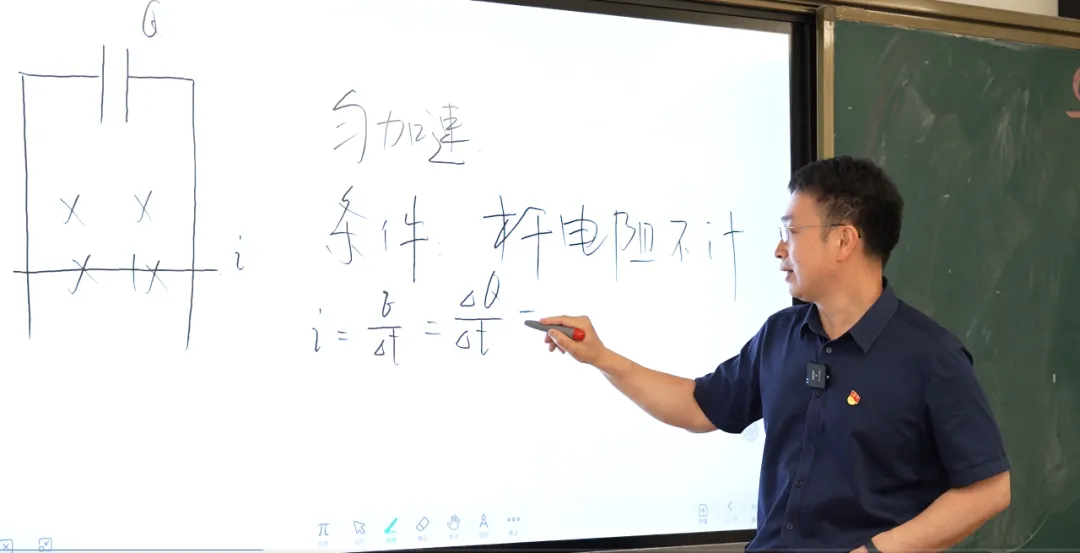 Q
匀加速.
条件: 杆电阻不计
i
i = q/Δt = ΔQ/Δt =